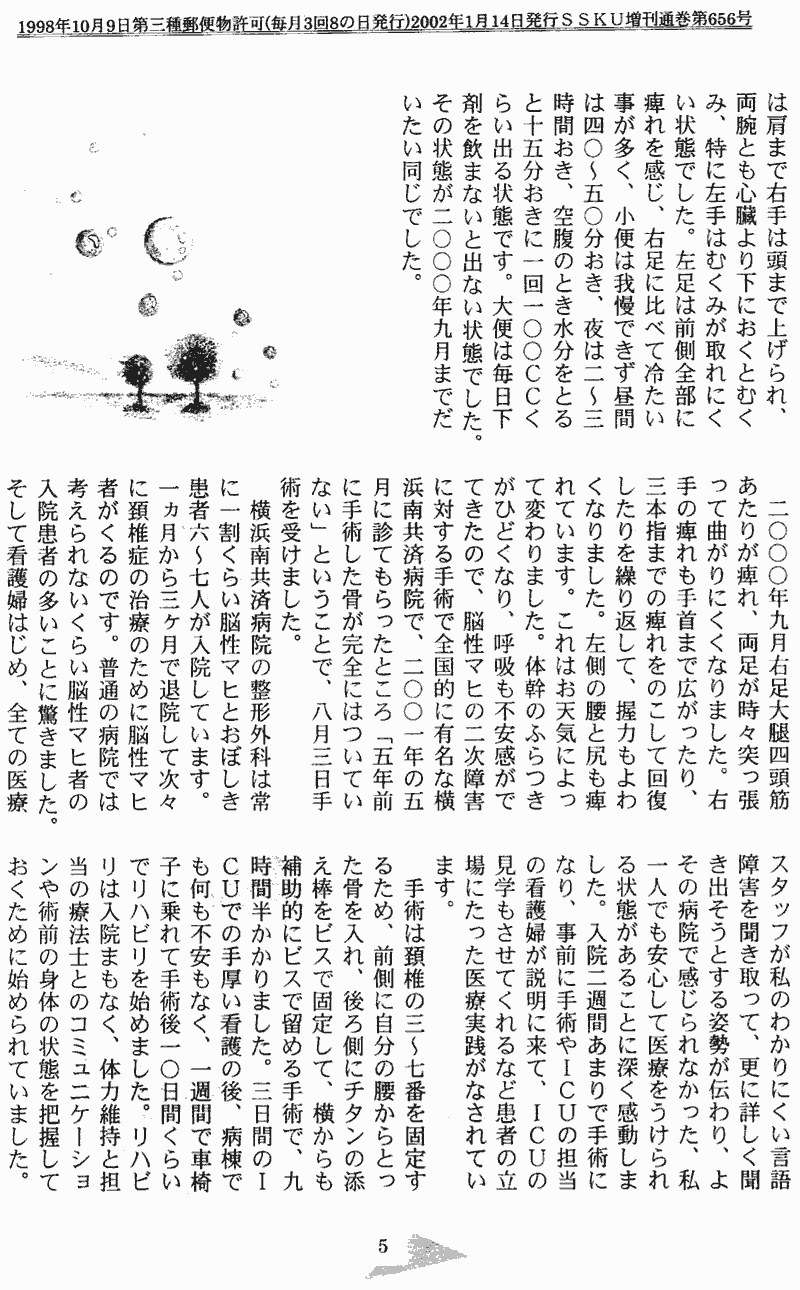 1998年10月9日第三種郵便物許可(毎月3回8の日発行)2002年1月14日発行ＳＳＫＵ増刊通巻第656号
は肩まで右手は頭まで上げられ、
両腕とも心臓より下におくとむく
み、特に左手はむくみが取れにく
い状態でした。左足は前側全部に
痺れを感じ、右足に比べて冷たい
事が多く、小便は我慢できず昼間
は四〇～五〇分おき、夜は二～三
時間おき、空腹のとき水分をとる
と十五分おきに一回一〇〇ＣＣく
らい出る状態です。大便は毎日下
剤を飲まないと出ない状態でした。
その状態が二〇〇〇年九月までだ
いたい同じでした。
二〇〇〇年九月右足大腿四頭筋
あたりが痺れ、両足が時々突っ張
って曲がりにくくなりました。右
手の痺れも手首まで広がったり、
三本指までの痺れをのこして回復
したりを繰り返して、握力もよわ
くなりました。左側の腰と尻も痺
れています。これはお天気によっ
て変わりました。体幹のふらつき
がひどくなり、呼吸も不安感がで
てきたので、脳性マヒの二次障害
に対する手術で全国的に有名な横
浜南共済病院で、二〇〇一年の五
月に診てもらったところ「五年前
に手術した骨が完全にはついてい
ない」ということで、八月三日手
術を受けました。
横浜南共済病院の整形外科は常
に一割くらい脳性マヒとおぼしき
患者六～七人が入院しています。
一ヵ月から三ヶ月で退院して次々
に頚椎症の治療のために脳性マヒ
者がくるのです。普通の病院では
考えられないくらい脳性マヒ者の
入院患者の多いことに驚きました。
そして看護婦はじめ、全ての医療
スタッフが私のわかりにくい言語
障害を聞き取って、更に詳しく聞
き出そうとする姿勢が伝わり、よ
その病院で感じられなかった、私
一人でも安心して医療をうけられ
る状態があることに深く感動しま
した。入院二週間あまりで手術に
なり、事前に手術やＩＣＵの担当
の看護婦が説明に来て、ＩＣＵの
見学もさせてくれるなど患者の立
場にたった医療実践がなされてい
ます。
手術は頚椎の三～七番を固定す
るため、前側に自分の腰からとっ
た骨を入れ、後ろ側にチタンの添
え棒をビスで固定して、横からも
補助的にビスで留める手術で、九
時間半かかりました。三日間のＩ
ＣＵでの手厚い看護の後、病棟で
も何も不安もなく、一週間で車椅
子に乗れて手術後一〇日間くらい
でリハビリを始めました。リハビ
リは入院まもなく、体力維持と担
当の療法士とのコミュニケーショ
ンや術前の身体の状態を把握して
おくために始められていました。
5